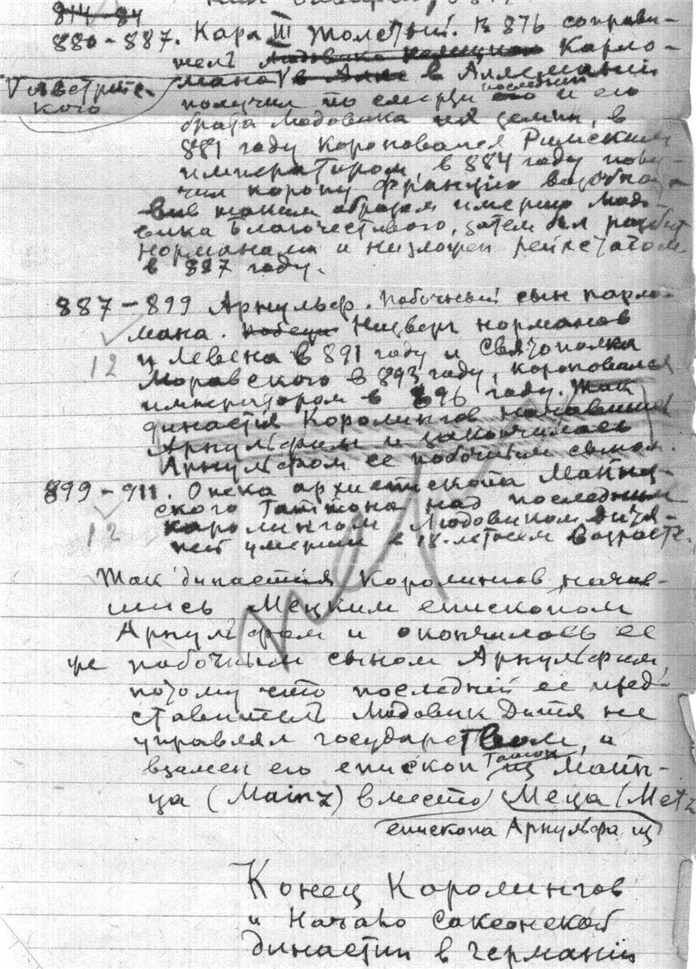 814 - 84
880 - 887. Карл III Толстый. В 876 соправи-
тель Людовика немецкаго Карло-
мана в Аллеманiи
V австрийс-
кого
получил по смерти последний его и его
брата Людовика их земли, в
881 году короновался Римским
императором, в 884 году полу-
чил корону Францiи возобно-
вив таким образом имерию Людо-
вика Благочестивого, затем был разбит
норманами и низложен рейхстагом
в 887 году.
887 - 899 Арнульф. Побочный сын Карло-
мана. Победи Низверг норманов
12
и Левена в 891 году и Святополка
Моравского в 893 году, короновался
императором в 896 году. Так
династiя Королингов начавшись
Арнульфом и закончилась
Арнульфом ее побочным сыном.
899 - 911. Опека архиепископа Майнц-
ского Гаттона над последним
12
каролингом Людовиком Дитя-
тей умершим в 18-летнем возрасте.
нет
Так династiя Королингов начав-
шись Мецким епископом
Арнульфом и окончилось ее
же побочным сыном Арнульфом,
потому что последнiй ее пред-
ставитель Людовик Дитя не
управлял государством, а
взамен его епископ Гаттон из Майн-
ца (Mainz) вместо Меца (Metz
епископа Арнульфа из
Конец Королингов
и Начало Саксонской
династии в Германiи